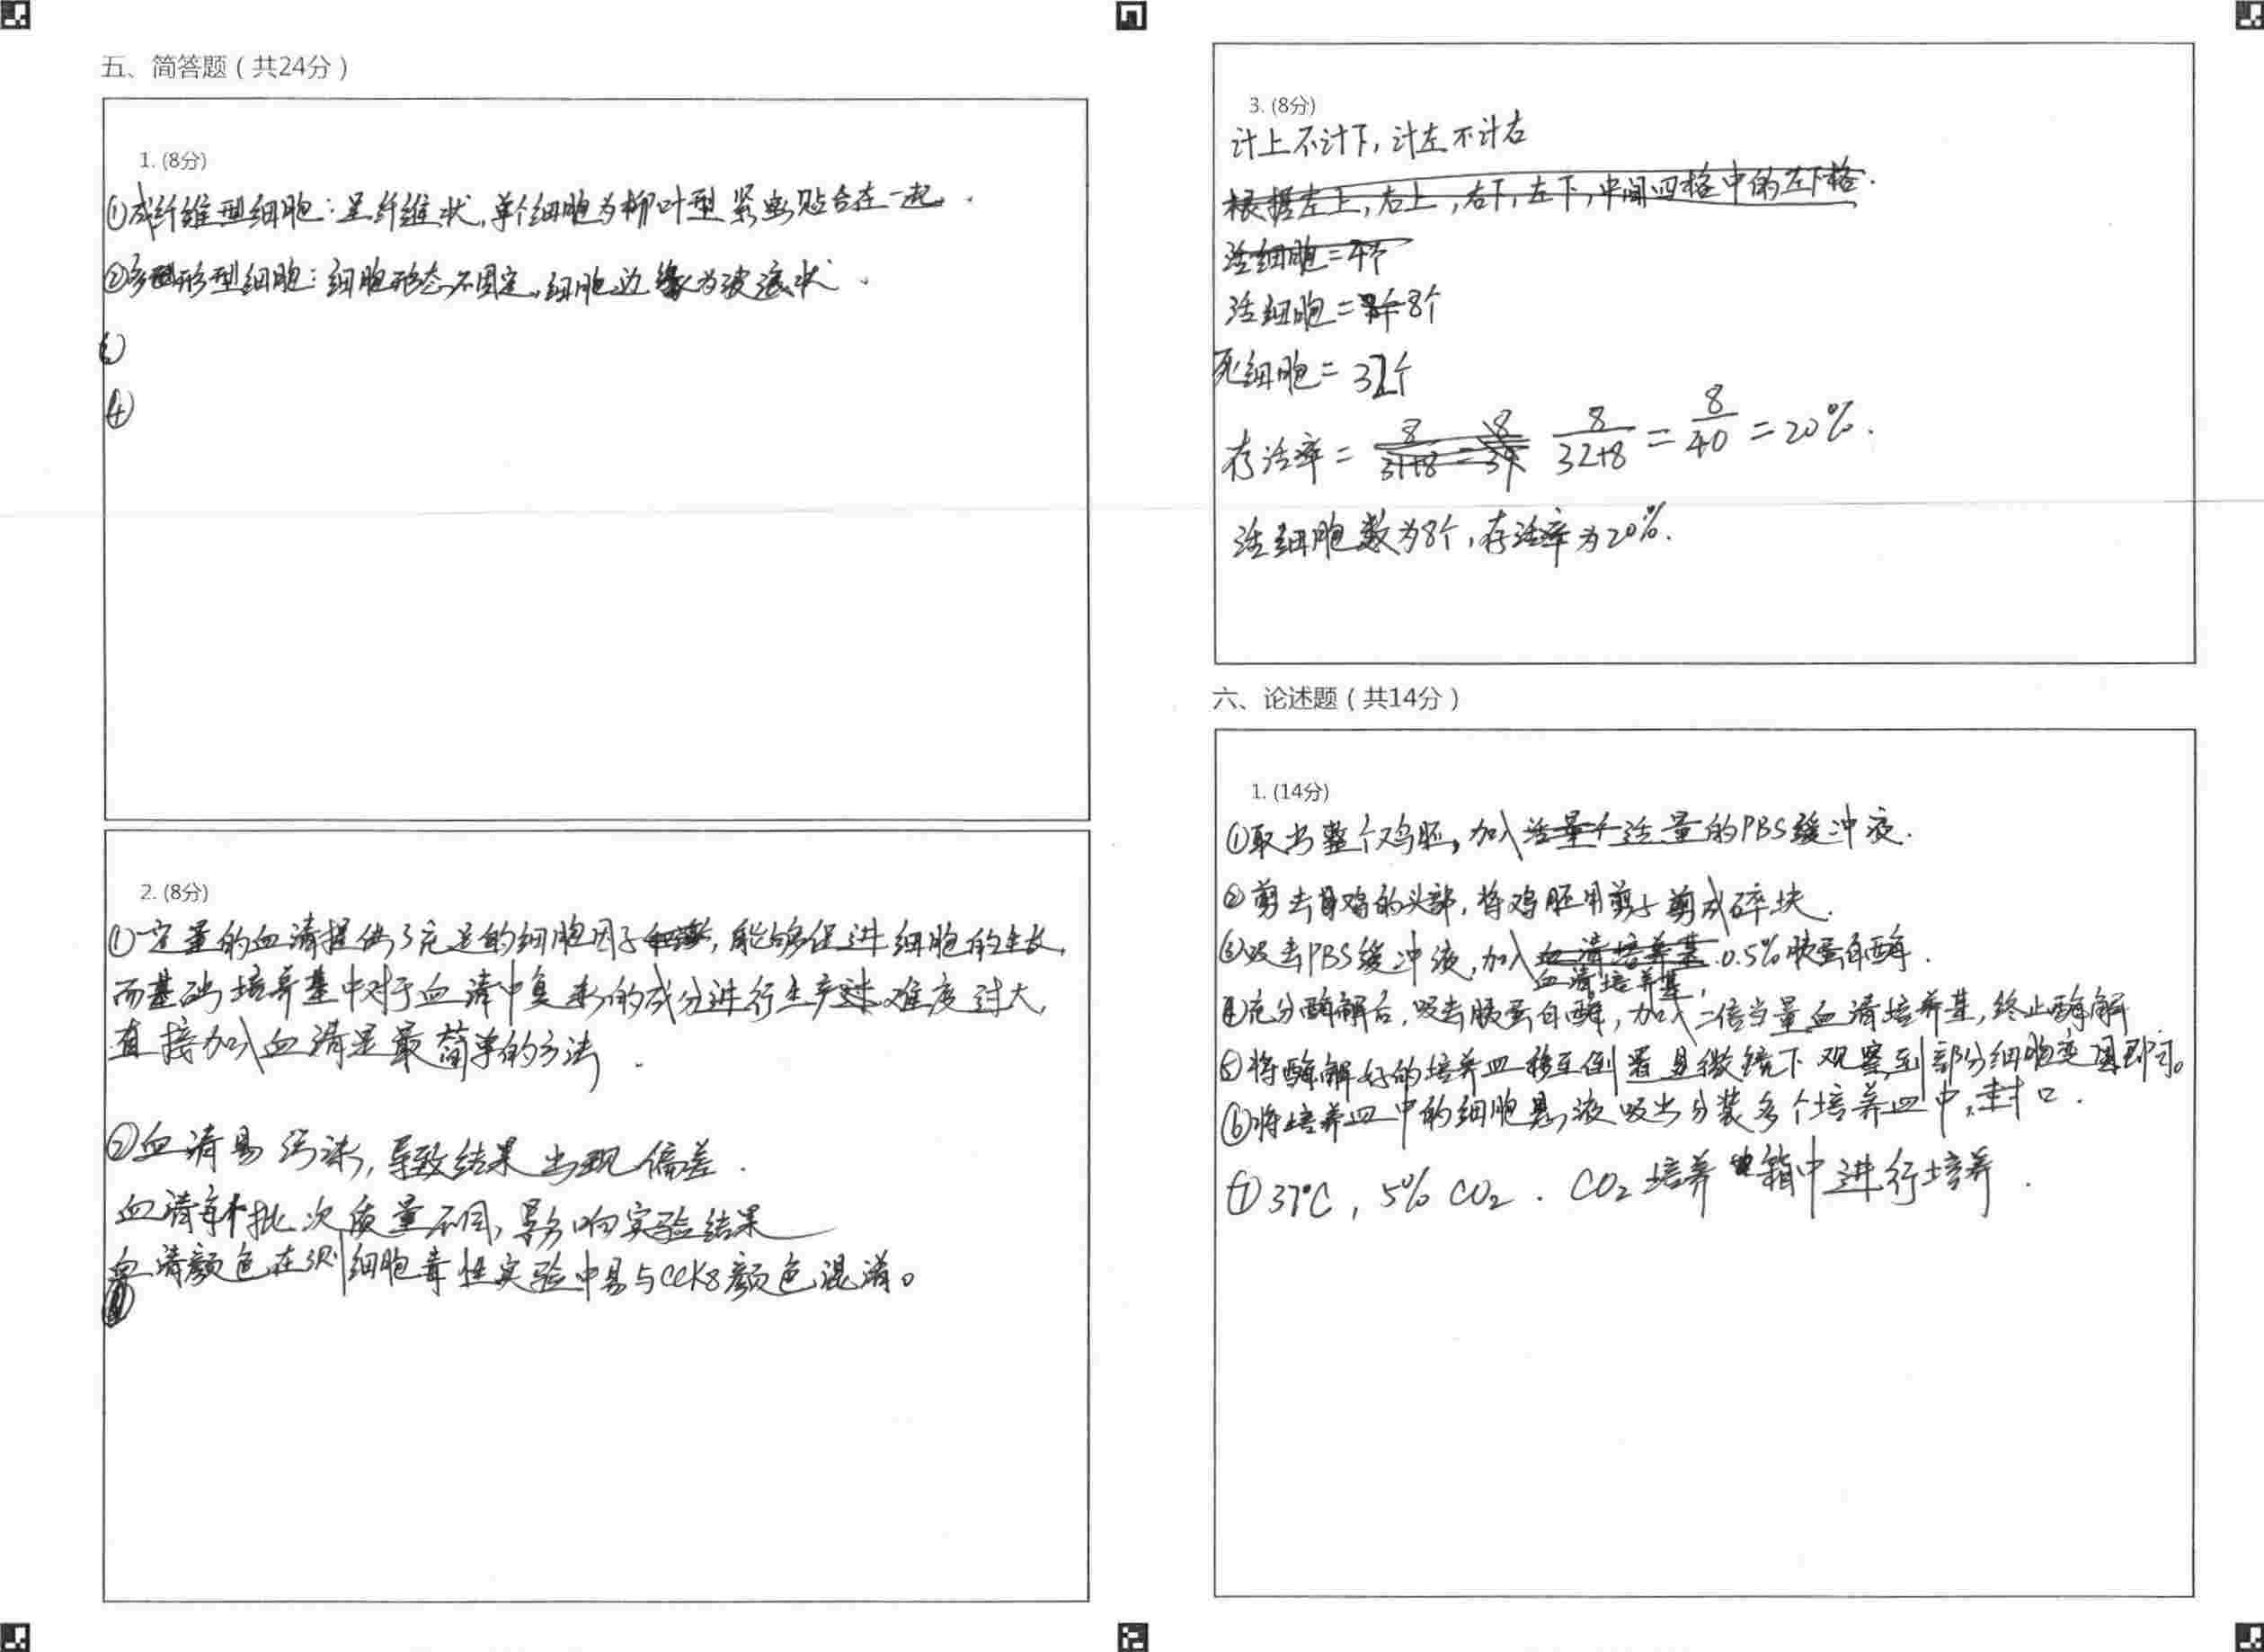 五、简答题（共24分）
1. (8分)
①成纤维型细胞：呈纤维状，单个细胞为柳叶型 紧密贴合在一起。
②多形型细胞：细胞形态不固定，细胞边缘为波浪状。
③
④
2. (8分)
①一定量的血清提供了充足的细胞因子，能够促进细胞的生长，
而基础培养基中对于血清中复杂的成分进行生产难度过大，
直接加入血清是最简单的方法.
②血清易污染，导致结果出现偏差.
血清每批次质量不同，影响实验结果
血清颜色在测细胞毒性实验中易与CCK8颜色混淆。
3. (8分)
计上不计下，计左不计右
根据左上，右上，右下，左下，中间四格中的左下格.
活细胞=4个
活细胞=8个
死细胞=32个
存活率= 8/31+8 = 8/39 8/32+8 = 8/40 = 20%.
活细胞数为8个，存活率为20%.
六、论述题（共14分）
1. (14分)
①取出整个鸡胚，加入适量的PBS缓冲液.
②剪去鸡的头部，将鸡胚用剪子剪成碎块.
③吸去PBS缓冲液，加入血清培养基 0.5%胰蛋白酶.
血清培养基，
④充分酶解后，吸去胰蛋白酶，加入二倍当量血清培养基，终止酶解.
⑤将酶解好的培养皿移至倒置显微镜下观察到部分细胞变圆即可。
⑥将培养皿中的细胞悬液吸出分装多个培养皿中，封口.
⑦37℃，5% CO₂. CO₂培养箱中进行培养.